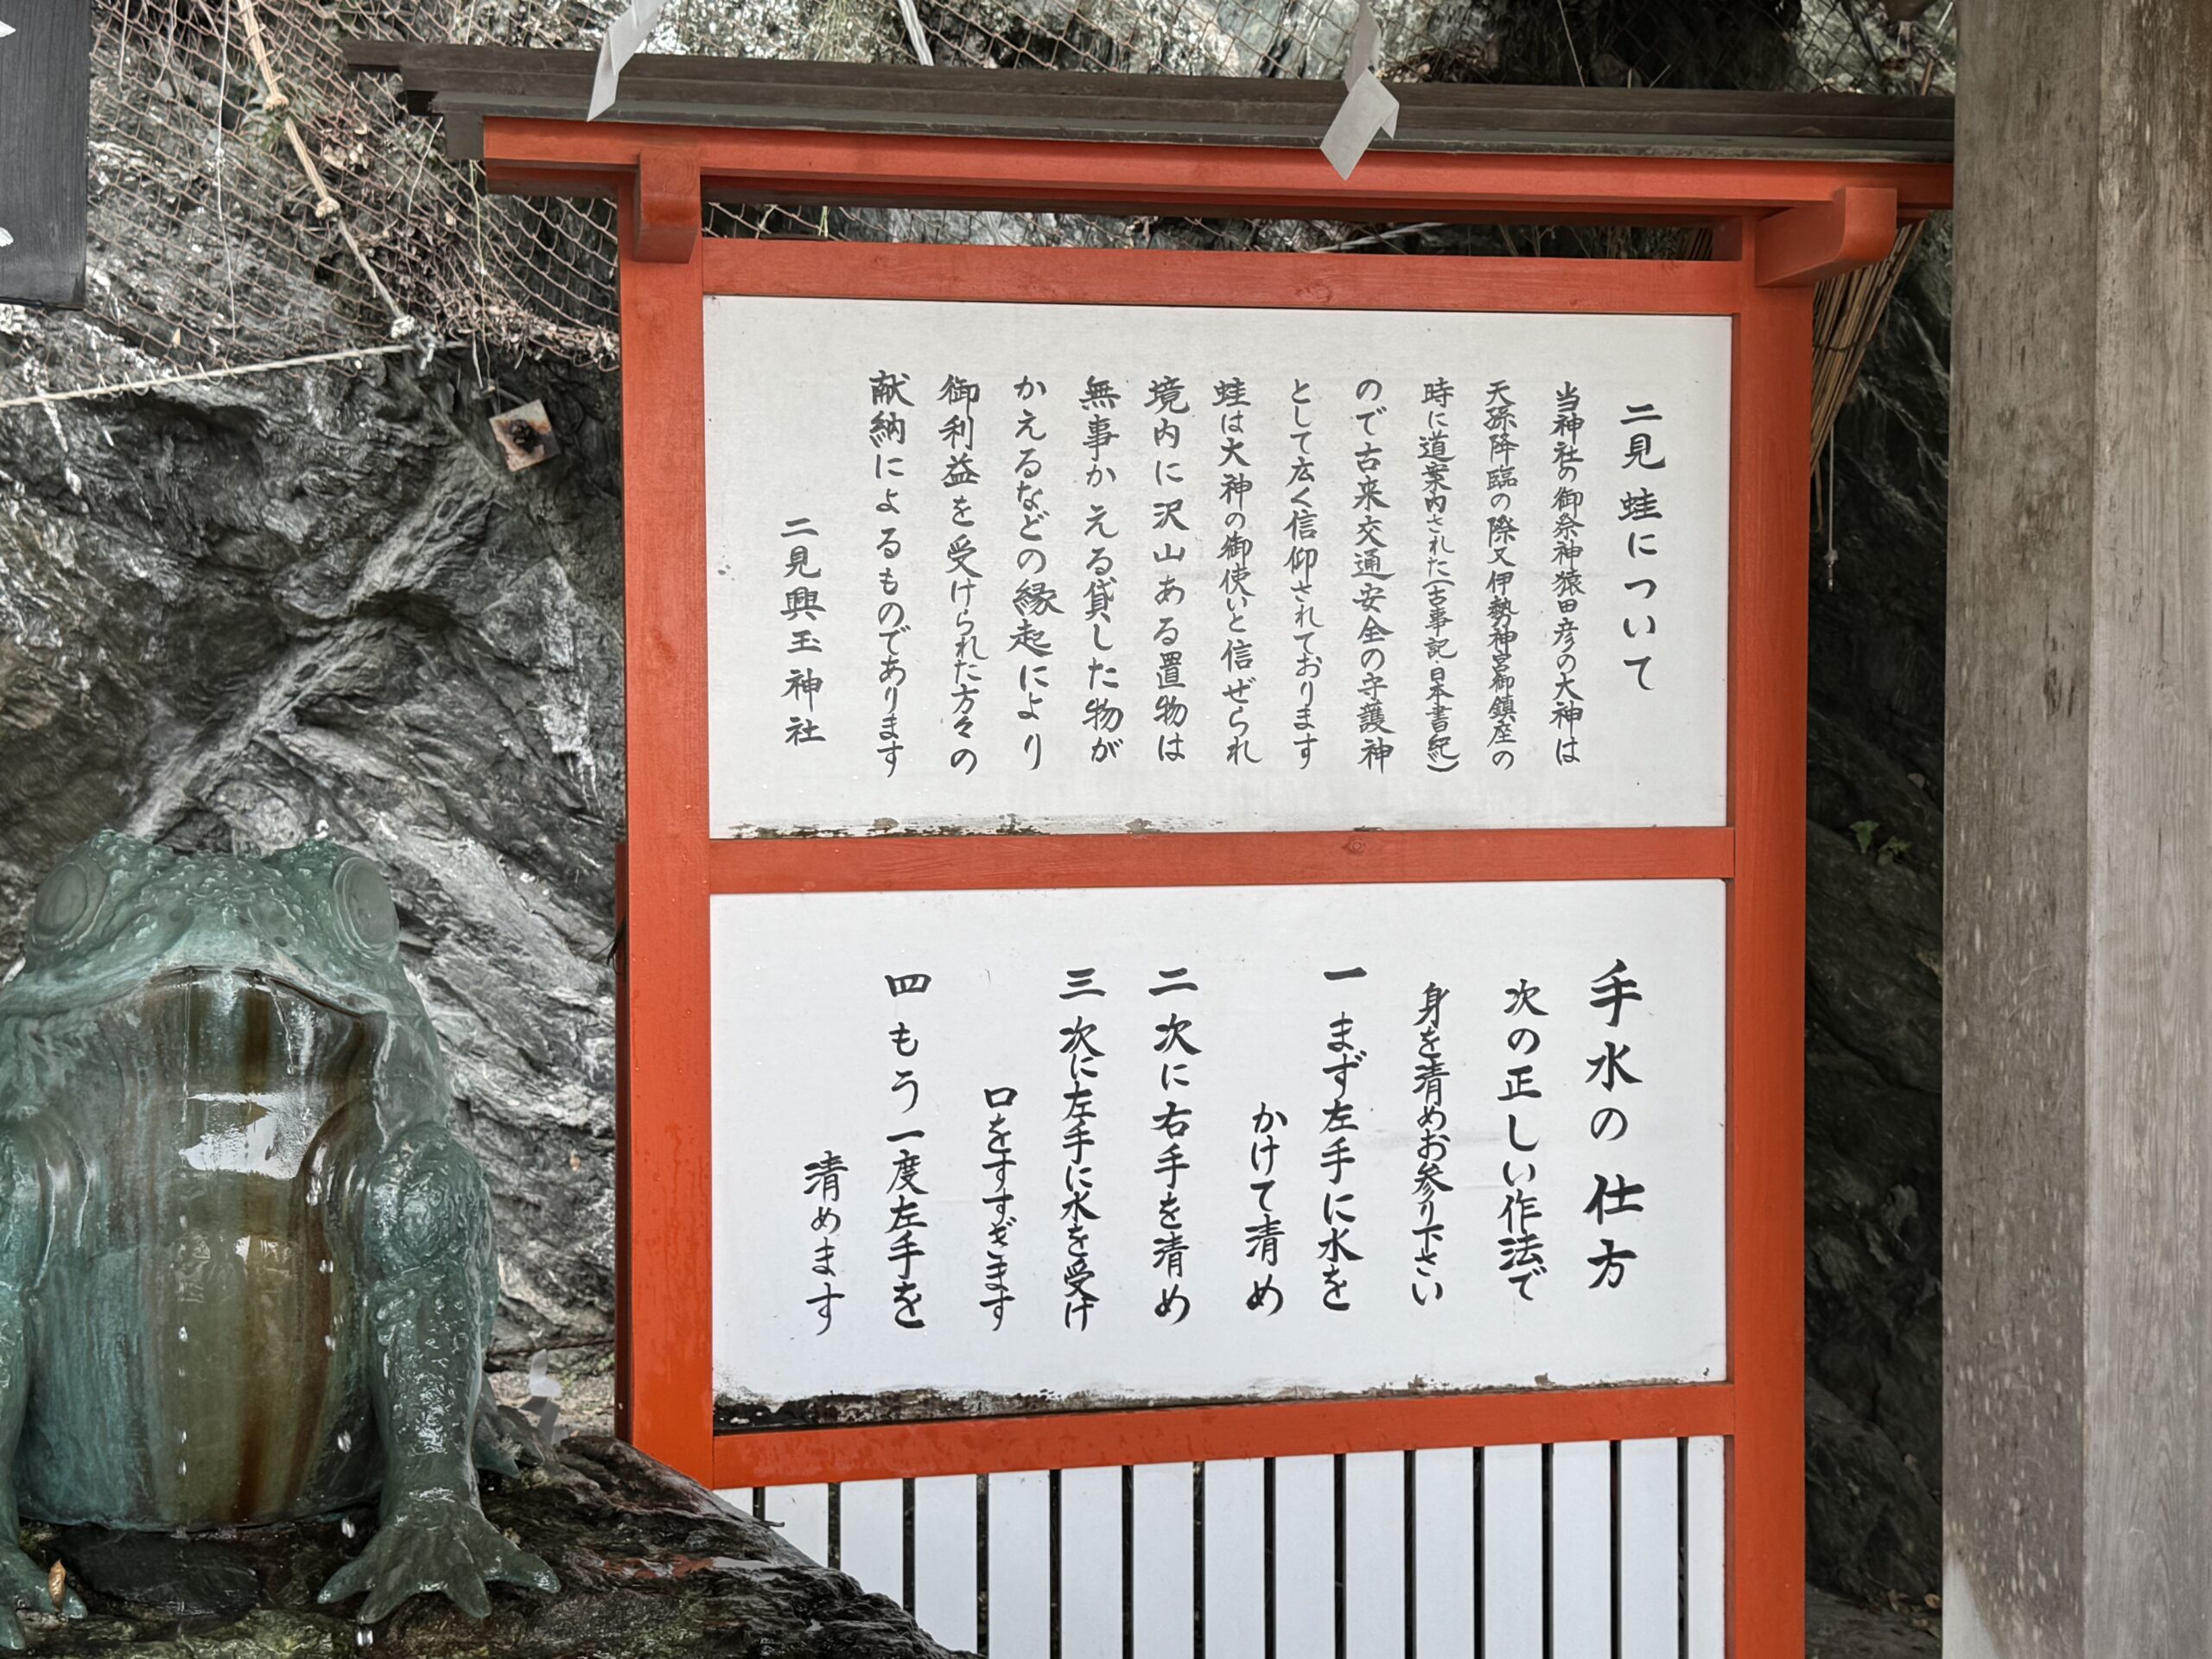 二見蛙について
当神社の御祭神猿田彦の大神は
天孫降臨の際又伊勢神宮御鎮座の
時に道案内された(古事記・日本書紀)
ので古来交通安全の守護神
として広く信仰されております
蛙は大神の御使いと信ぜられ
境内に沢山ある置物は
無事かえる貸した物が
かえるなどの縁起により
御利益を受けられた方々の
献納によるものであります
二見興玉神社
手水の仕方
次の正しい作法で
身を清めお参り下さい
一 まず左手に水を
かけて清め
二 次に右手を清め
三 次に左手に水を受け
口をすすぎます
四 もう一度左手を
清めます